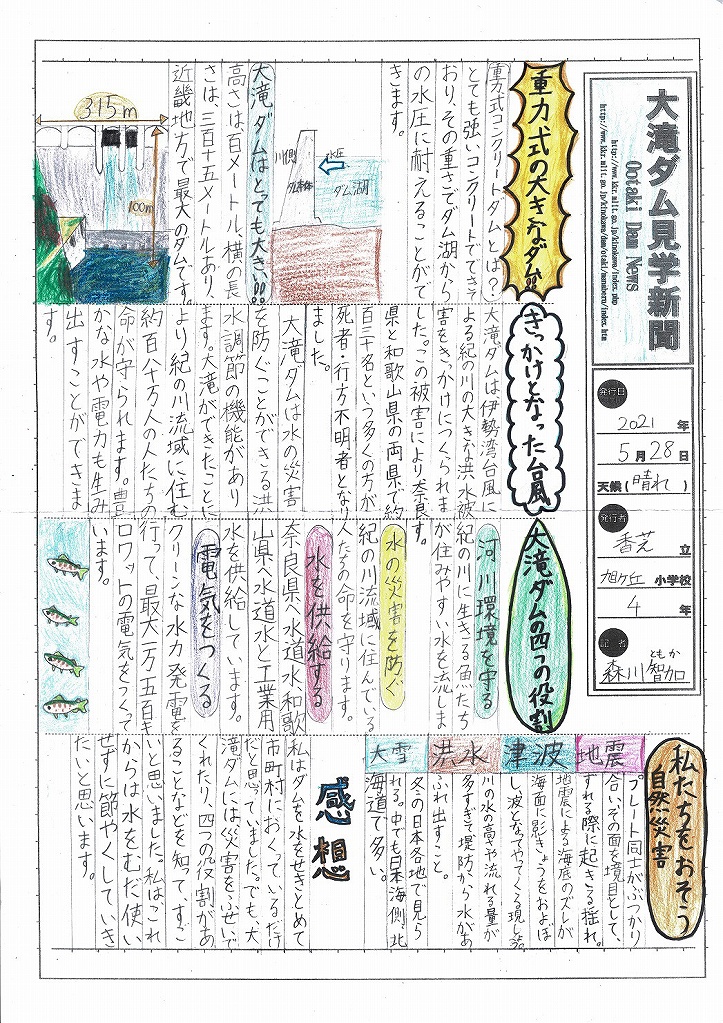 大滝ダム見学新聞
Ootaki Dam News
http://www.kkr.mlit.go.jp/kinokawa/index.php
発行日
2021年
5月28日
天候(晴れ)
発行者
香芝立
旭ケ丘小学校
4年
記者
ともか
森川智加
重力式の大きなダム!!
重力式コンクリートダムとは?
とても強いコンクリートでできて
おり、その重さでダム湖から
の水圧に耐えることがで
きます。
川側
ダム本体
水圧
ダム湖
大滝ダムはとても大きい!!
高さは百メートル、横の長
さは、三百十五メートルあり、
近畿地方で最大のダムです。
315m
100m
きっかけとなった台風
大滝ダムは伊勢湾台風に
よる紀の川の大きな洪水被
害をきっかけにつくられま
した。この被害により奈良
県と和歌山県の両県で約
百三十名という多くの方が
死者・行方不明者となり
ました。
大滝ダムは水の災害
を防ぐことができる洪
水調節の機能があり
ます。大滝ができたことに
より紀の川流域に住む
約百六十万人の人たちの
命が守られます。豊
かな水や電力も生み
出すことができま
す。
大滝ダムの四つの役割
河川環境を守る
紀の川に生きる魚たち
が住みやすい水を流しま
す。
水の災害を防ぐ
紀の川流域に住んでいる
人たちの命を守ります。
水を供給する
奈良県へ水道水、和歌
山県へ水道水と工業用
水を供給しています。
電気をつくる
クリーンな水力発電を
行って、最大一万五百キ
ロワットの電気をつくって
います。
私たちをおそう
自然災害
地震
プレート同士がぶつかり
合い、その面を境目として、
ずれる際に起きる揺れ。
津波
地震による海底のズレが
海面に影きょうをおよぼ
し、波となってやってくる現しょう。
洪水
川の水の高さや流れる量が
多すぎて堤防から水があ
ふれ出すこと。
大雪
冬の日本各地で見ら
れる。中でも日本海側、北
海道で多い。
感想
私はダムを水をせきとめて
市町村におくっているだけ
だと思っていました。でも、大
滝ダムには災害をふせいで
くれたり、四つの役割があ
ることなどを知って、すご
いと思いました。私はこれ
からは水をむだ使い
せずに節やくしていき
たいと思います。